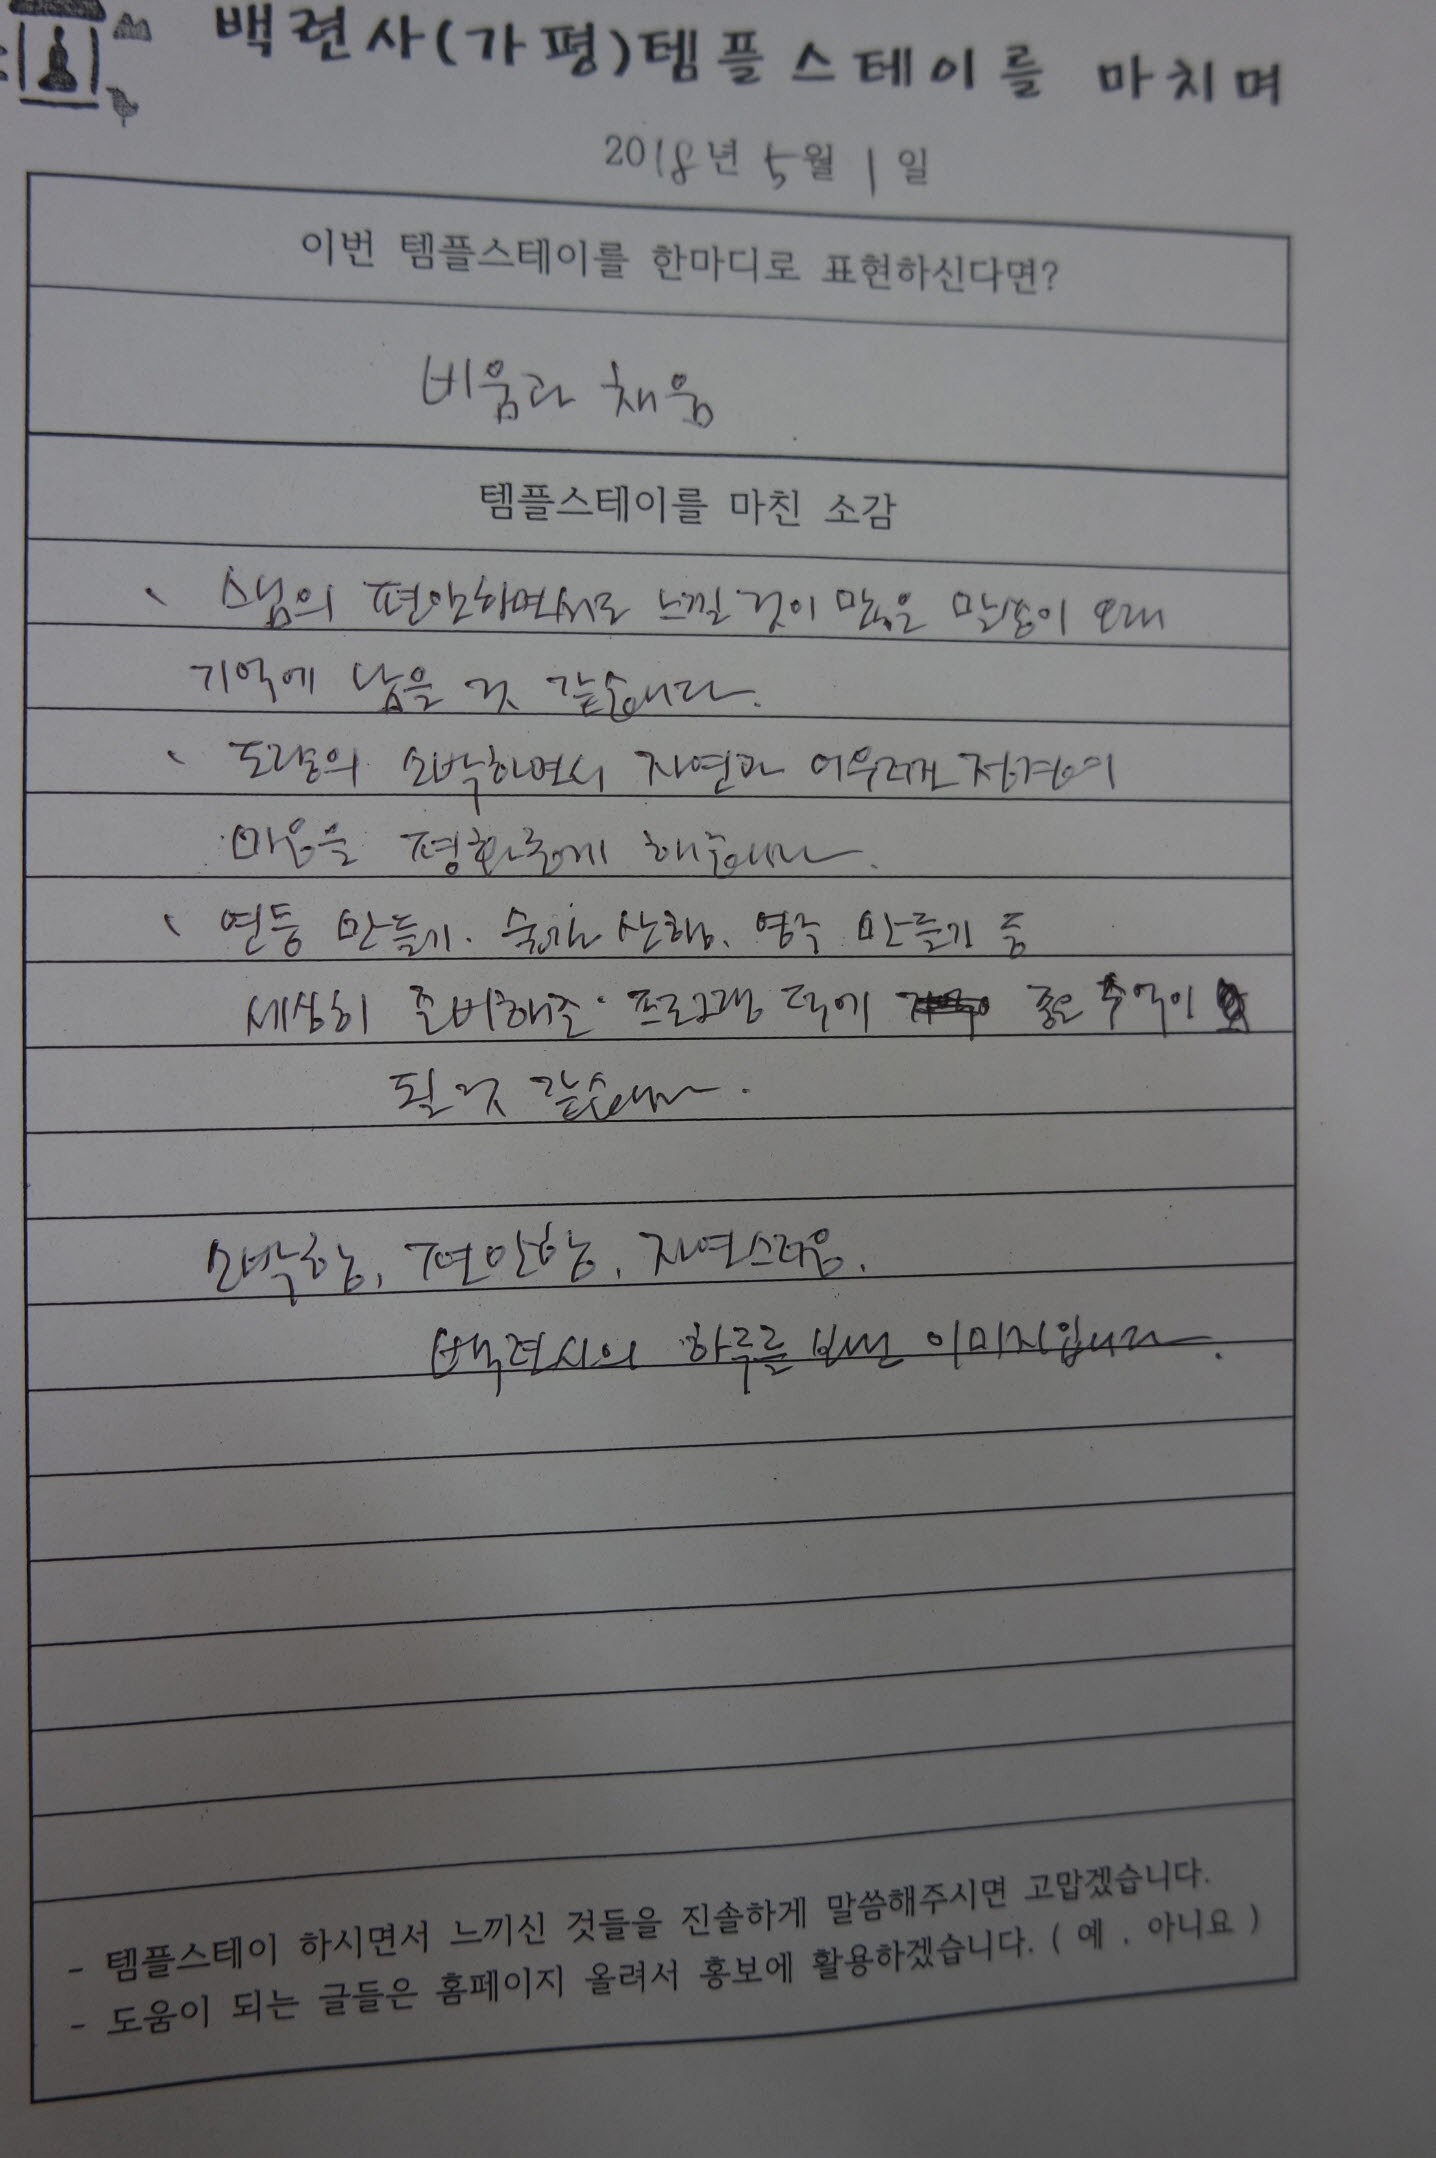 백련사(가평)템플스테이를 마치며
2018년 5월 1일
이번 템플스테이를 한마디로 표현하신다면?
비움과 채움
템플스테이를 마친 소감
、 스님의 편안하면서도 느낄 것이 많은 말씀이 오래
기억에 남을 것 같습니다.
、 도량의 소박하면서 자연과 어우러진 정경이
마음을 평화롭게 해줍니다.
、 연등 만들기. 숲길 산행. 염주 만들기 등
세심히 준비해준 프로그램 덕에 좋은 추억이
될 것 같습니다.
소박함, 편안함, 자연스러움.
백련사의 하루를 보낸 이미지입니다.
- 템플스테이 하시면서 느끼신 것들을 진솔하게 말씀해주시면 고맙겠습니다.
- 도움이 되는 글들은 홈페이지 올려서 홍보에 활용하겠습니다. ( 예 , 아니요 )